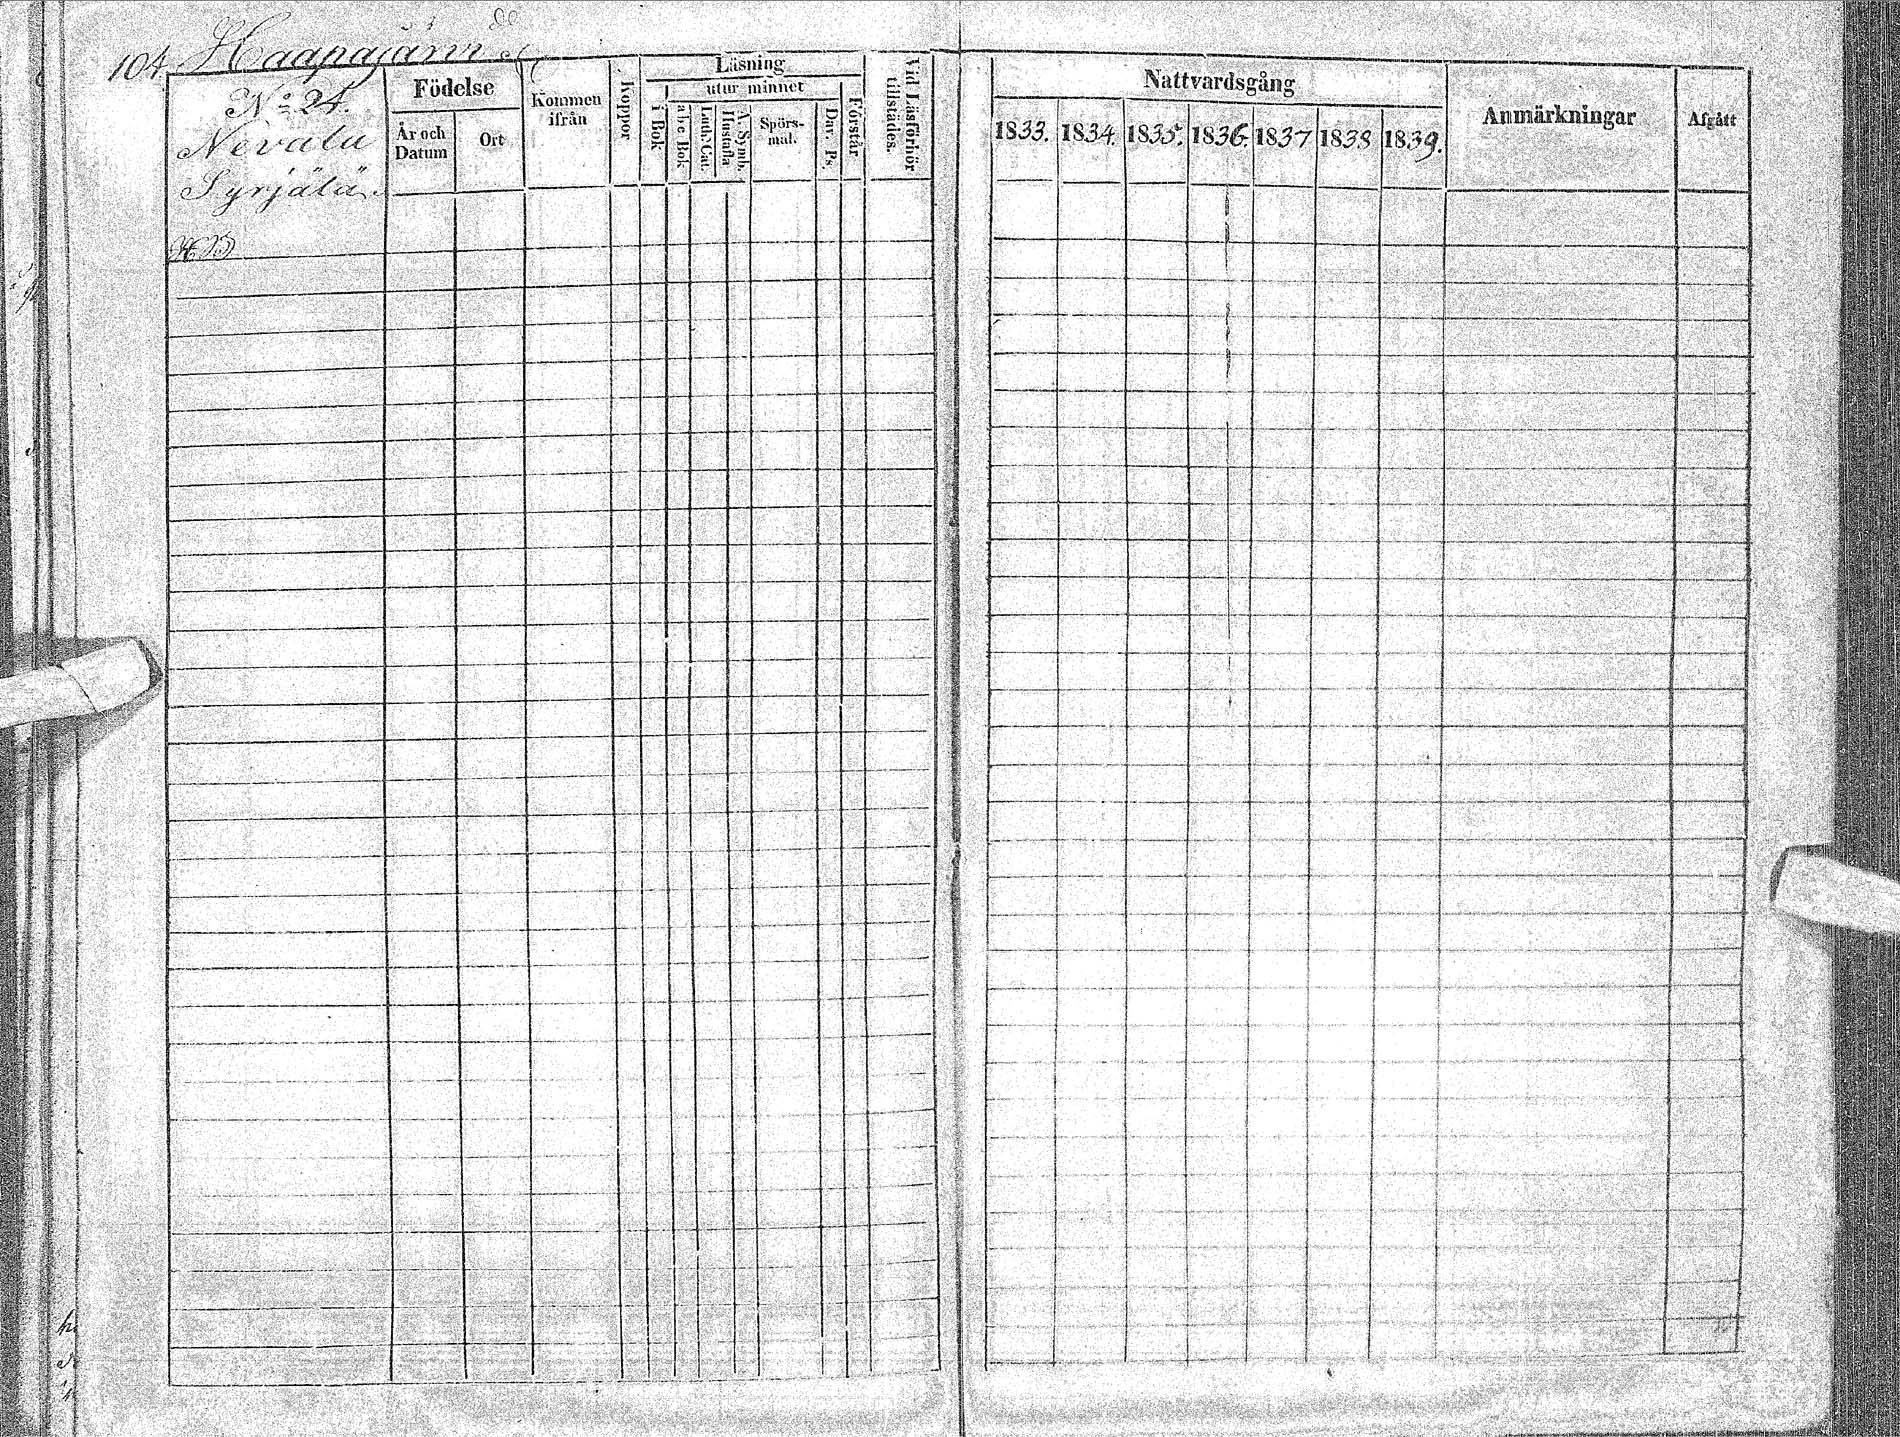 104 Haapajärvi
No 24.
Nevala
Syrjälä
Födelse
År och Datum
Ort
Kommen ifrån
Koppor
Läsning
utur minnet
i Bok
abc Bok
Luth. Cat.
Hustafla
A. Symb.
Spörs-
mal.
Dav. Ps.
Förstår
Vid Läsförhör
tillstädes.
Nattvardsgång
1833. 1834. 1835. 1836. 1837 1838 1839.
Anmärkningar
Afgått